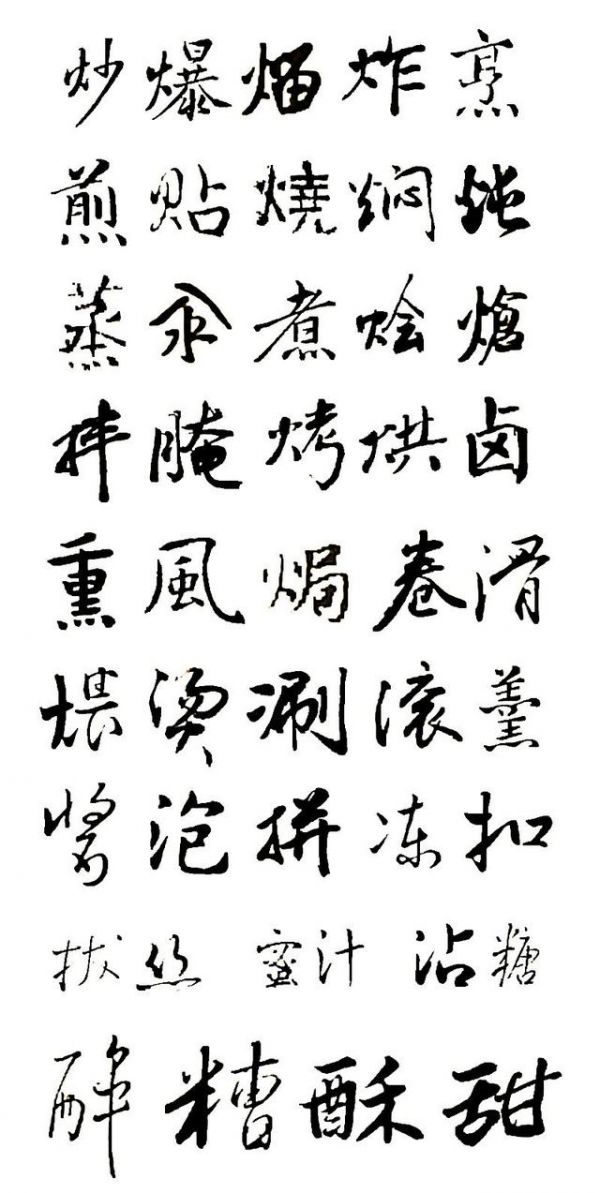 炒爆熘炸烹
煎貼燒焖炖
蒸汆煮烩熗
拌腌烤烘卤
熏風焗卷滑
煨燙涮滚羹
醬泡拼冻扣
拔丝 蜜汁 沾糖
醉糟酥甜